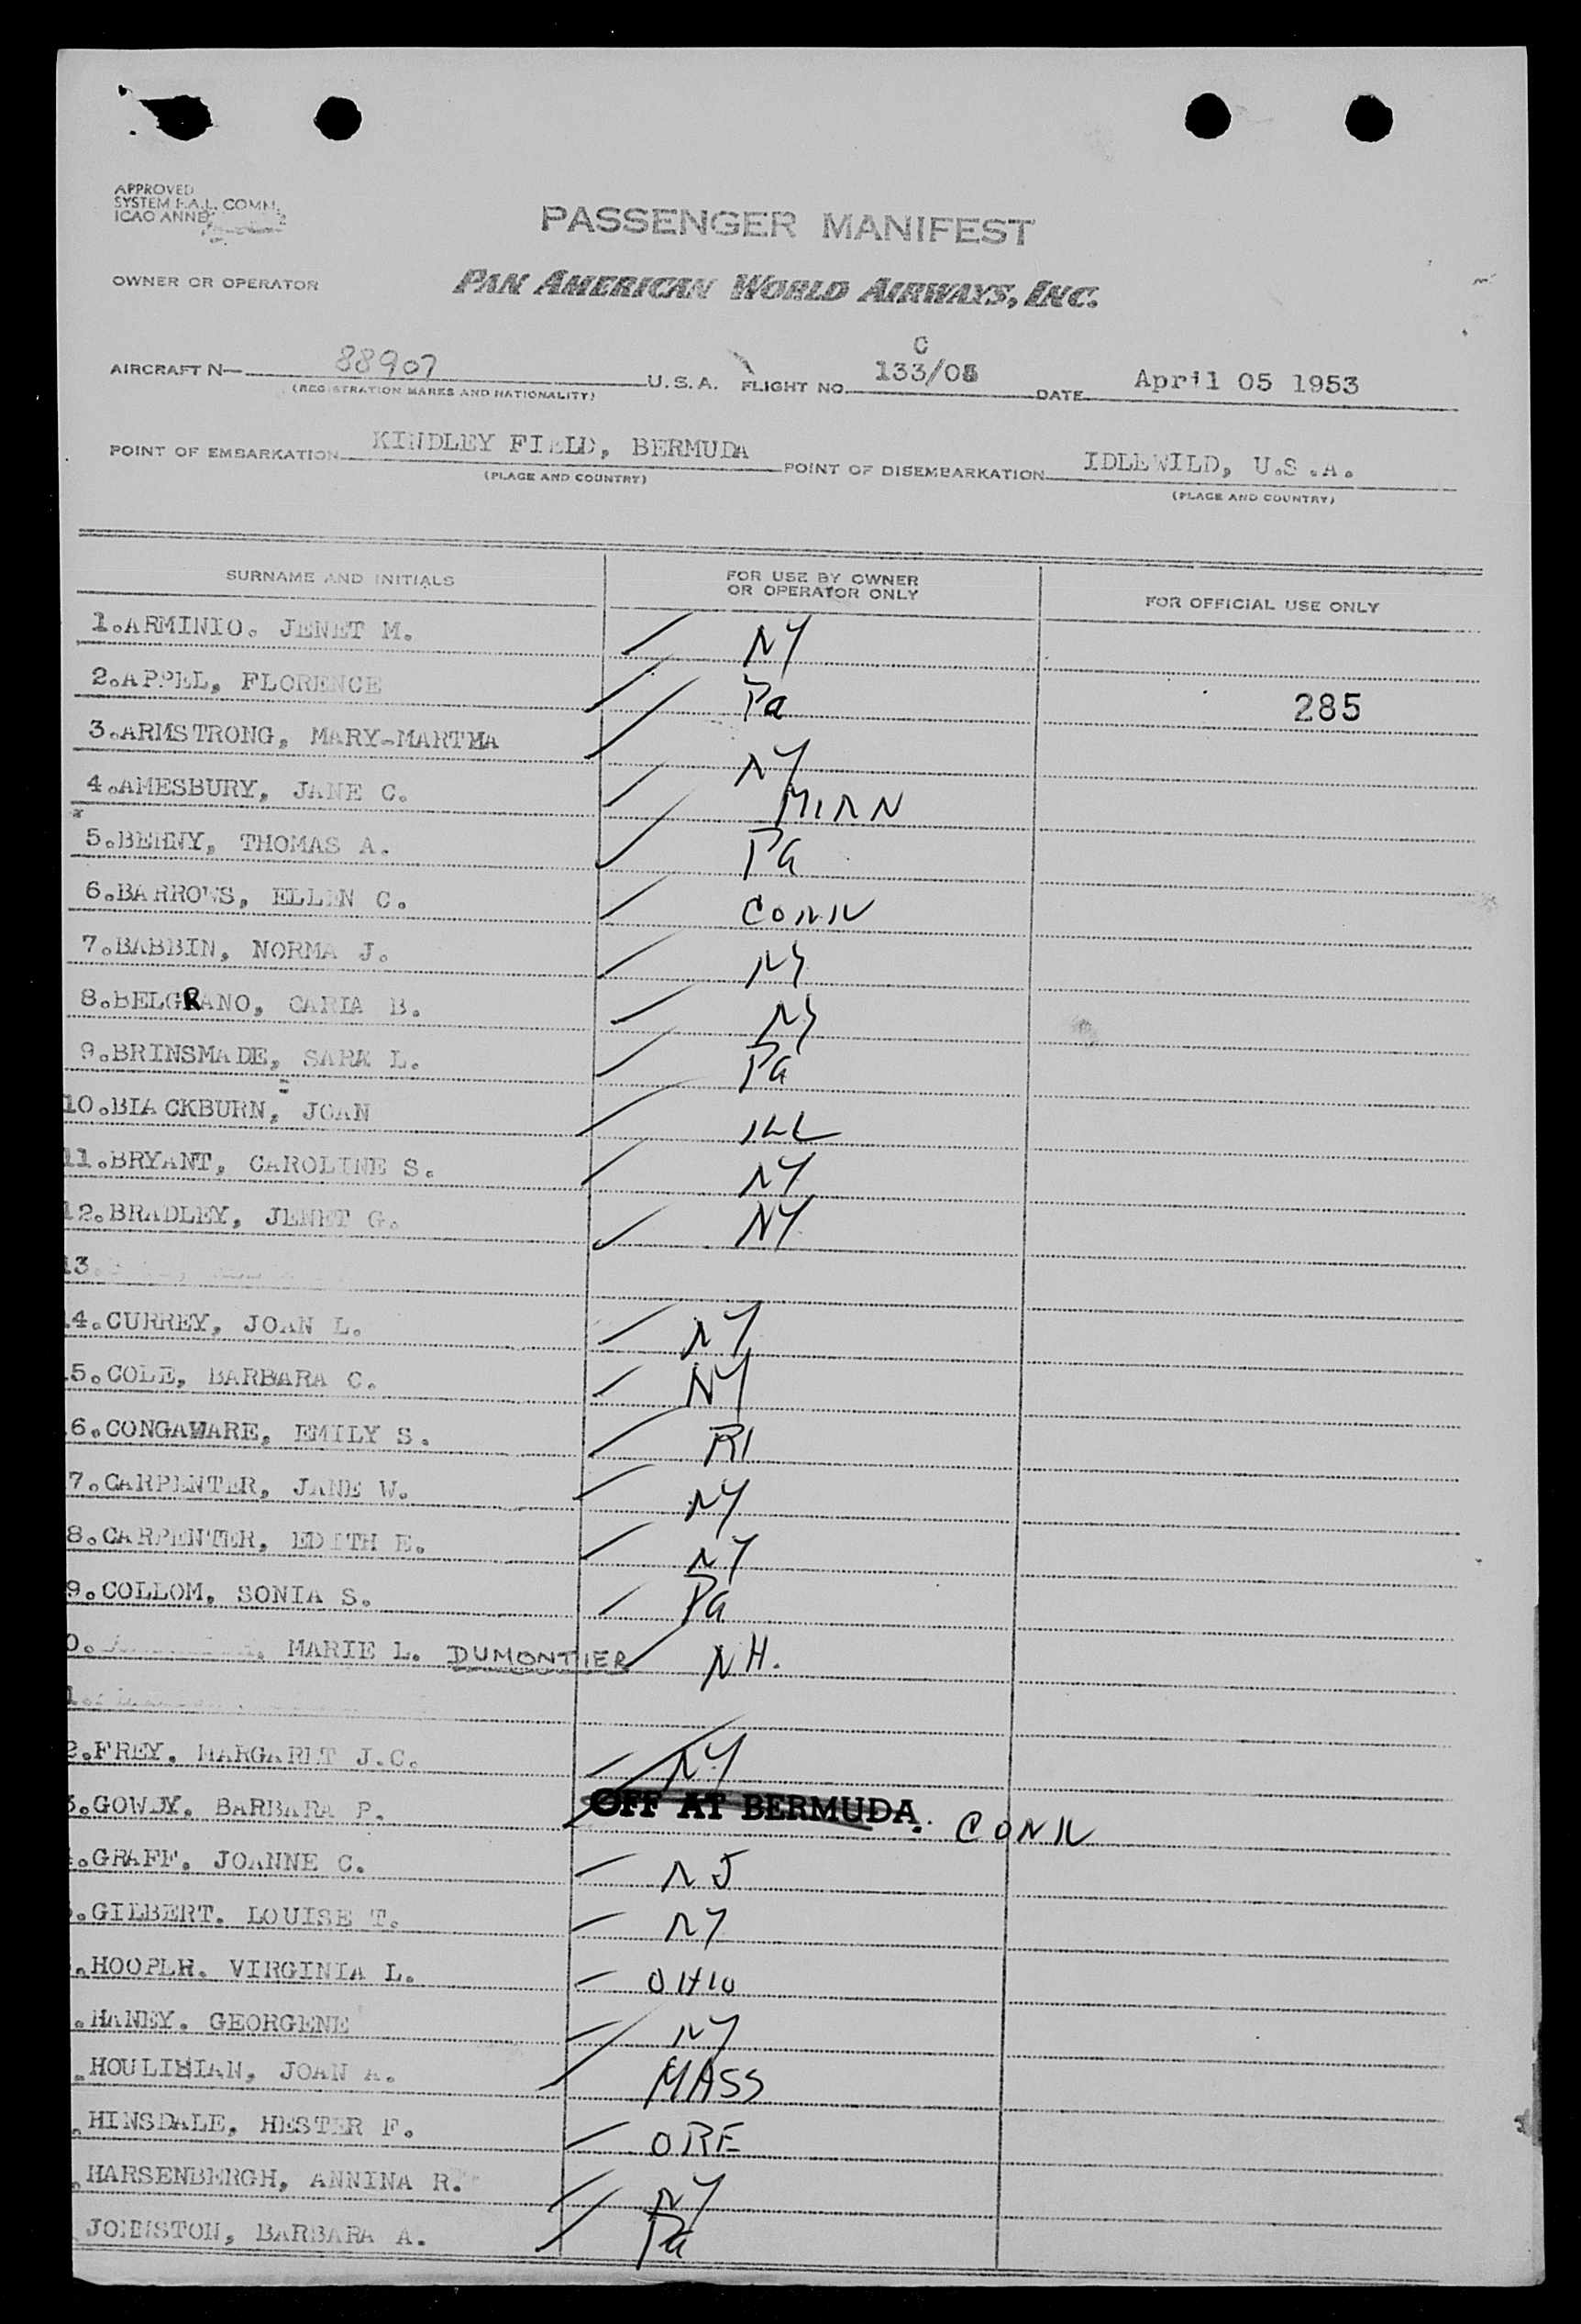 APPROVED
SYSTEM F.A.L. COMM.
ICAO ANNEX
PASSENGER MANIFEST
OWNER OR OPERATOR PAN AMERICAN WORLD AIRWAYS, INC.
C
AIRCRAFT N— 88907 U.S.A. FLIGHT NO. 133/05 DATE April 05 1953
(REGISTRATION MARKS AND NATIONALITY)
POINT OF EMBARKATION KINDLEY FIELD, BERMUDA POINT OF DISEMBARKATION IDLEWILD, U.S.A.
(PLACE AND COUNTRY) (PLACE AND COUNTRY)
SURNAME AND INITIALS FOR USE BY OWNER OR OPERATOR ONLY FOR OFFICIAL USE ONLY
1.ARMINIO. JENET M. NY
2.APPEL, FLORENCE Pa 285
3.ARMSTRONG, MARY-MARTHA NY
4.AMESBURY, JANE C. MINN
5.BEHNY, THOMAS A. Pa
6.BARROWS, ELLEN C. CONN
7.BABBIN, NORMA J. NY
8.BELGRANO, CARIA B. NY
9.BRINSMADE, SARA L. Pa
10.BIACKBURN, JOAN ILL
11.BRYANT, CAROLINE S. NY
12.BRADLEY, JENET G. NY
13.
4.CURREY, JOAN L. NY
5.COLE, BARBARA C. NY
6.CONGAWARE, EMILY S. RI
7.CARPENTER, JANE W. NY
8.CARPENTER, EDITH E. NY
9.COLLOM, SONIA S. Pa
0. MARIE L. DUMONTIER NH.
1.
2.FREY. MARGARET J.C. NY
3.GOWDY. BARBARA P. OFF AT BERMUDA. CONN
.GRAFF. JOANNE C. NJ
.GILBERT. LOUISE T. NY
.HOOPER. VIRGINIA L. OHIO
.HANEY. GEORGENE NY
.HOULIHIAN, JOAN A. MASS
.HINSDALE, HESTER F. ORE
.HARSENBERGH, ANNINA R. NY
JOHNSTON, BARBARA A. Pa